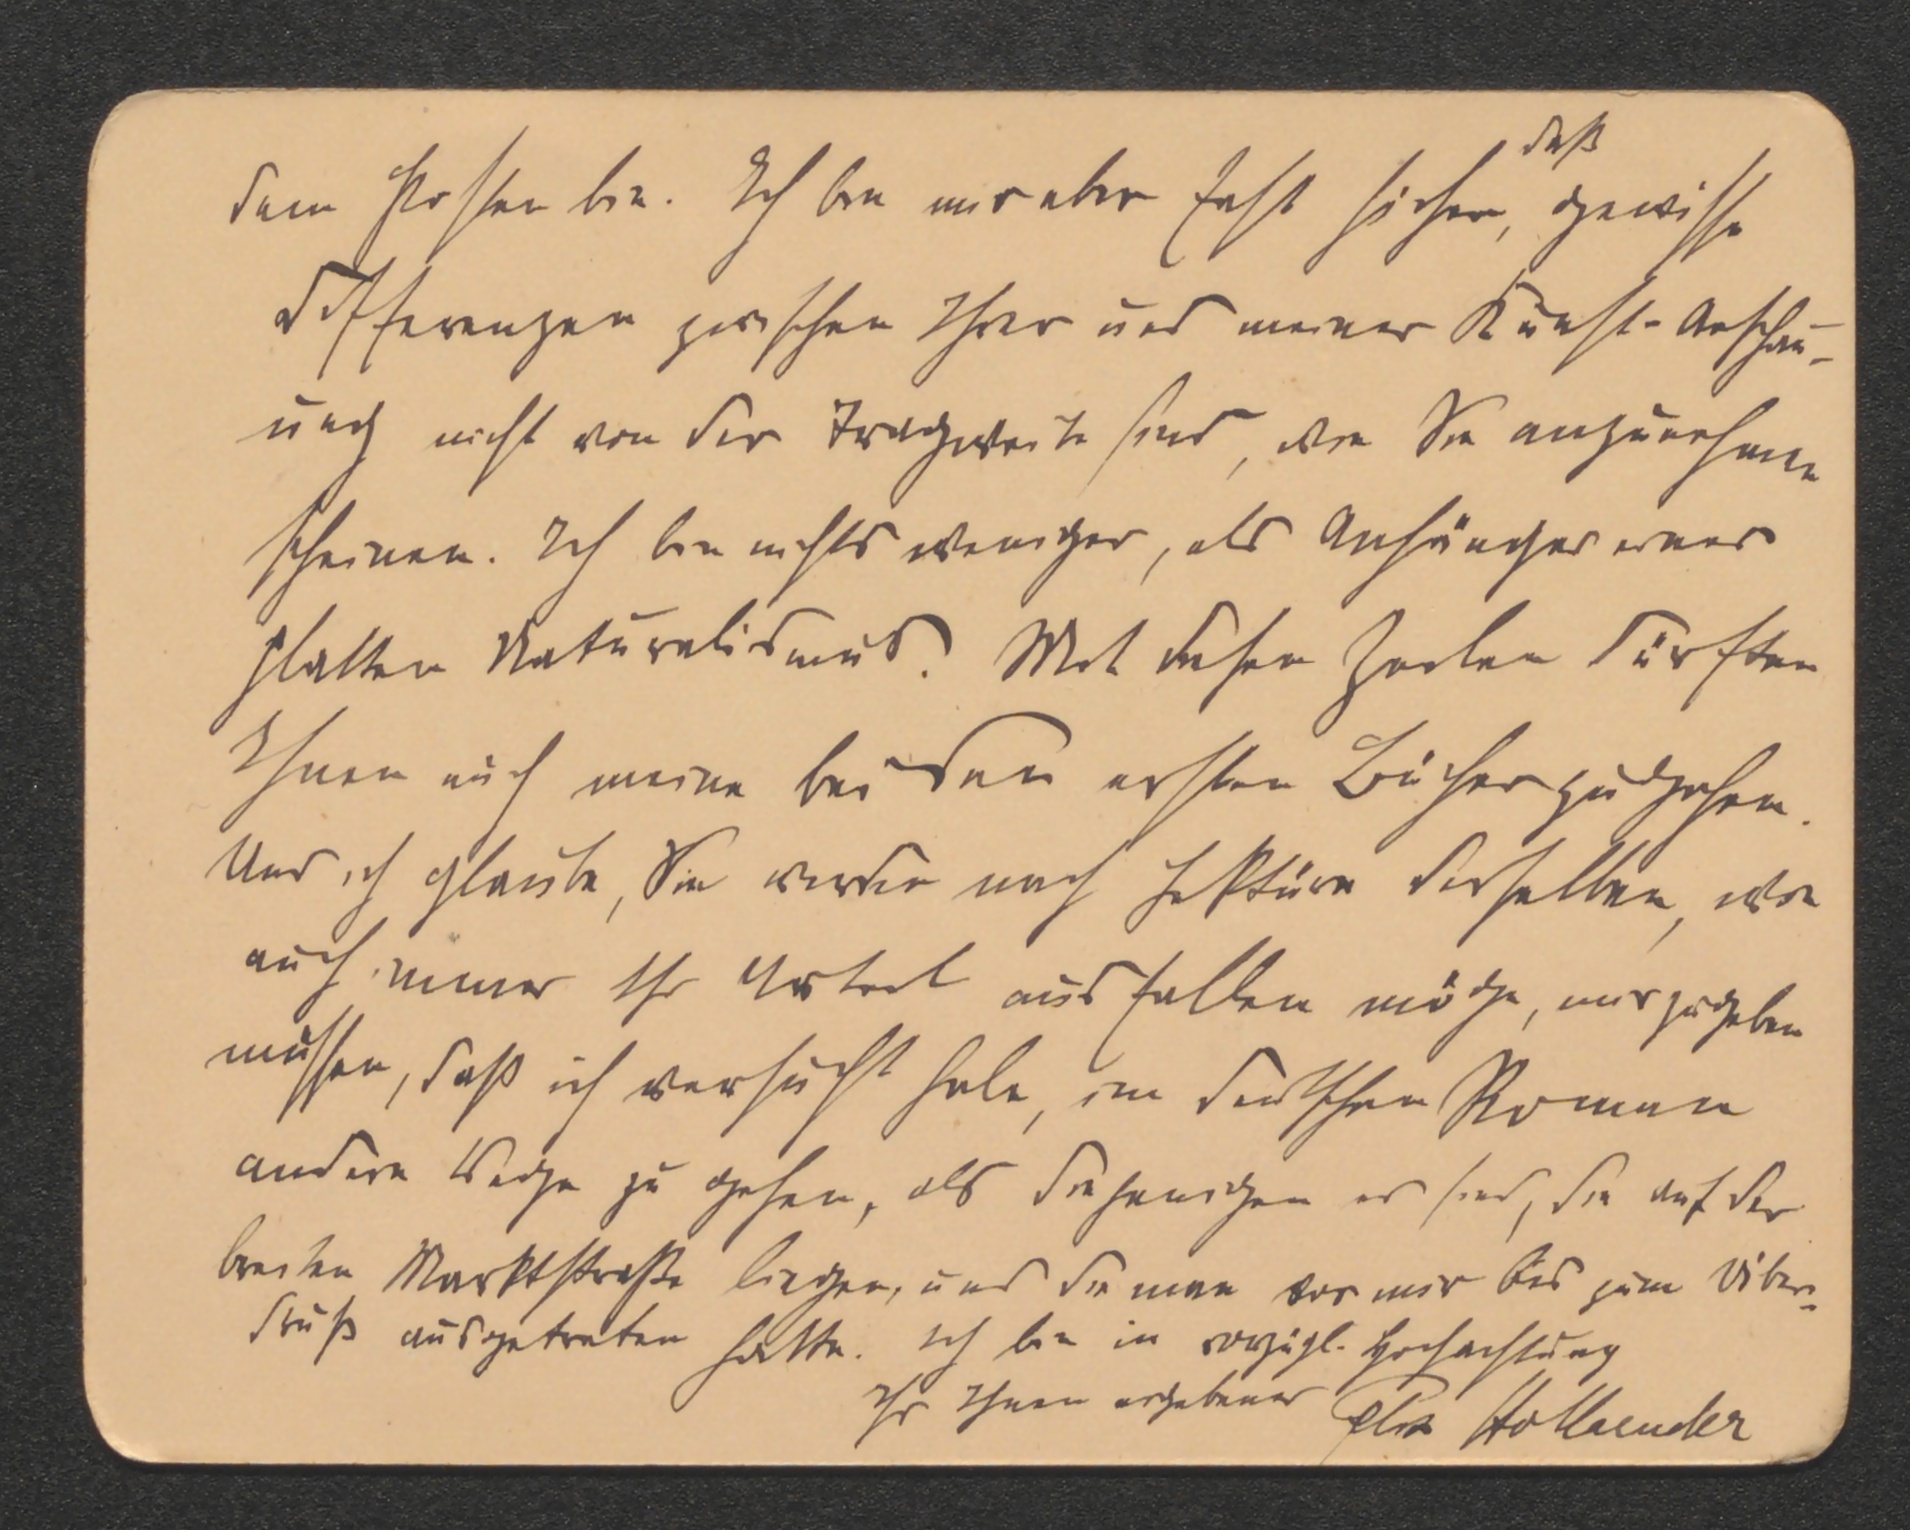 dem Posten bin. Ich bin mir aber fast sicher, daß gewisse
Differenzen zwischen Ihrer und meiner Kunst-Anschau-
ung nicht von der Tragweite sind, wie Sie anzunehmen
scheinen. Ich bin nichts weniger, als Anhänger eines
platten Naturalismus. Mit diesen Zeilen dürften
Ihnen auch meine beiden ersten Bücher zugehen.
Und ich glaube, Sie werden nach Lektüre derselben, wie
auch immer Ihr Urteil ausfallen möge, mir zugeben
müssen, daß ich versucht habe, im deutschen Roman
andere Wege zu gehen, als diejenigen es sind, die auf der
breiten Marktstraße liegen, und die man vor mir bis zum Über-
druß ausgetreten hatte. Ich bin in vorzügl. Hochachtung
Ihr Ihnen ergebener Felix Hollaender